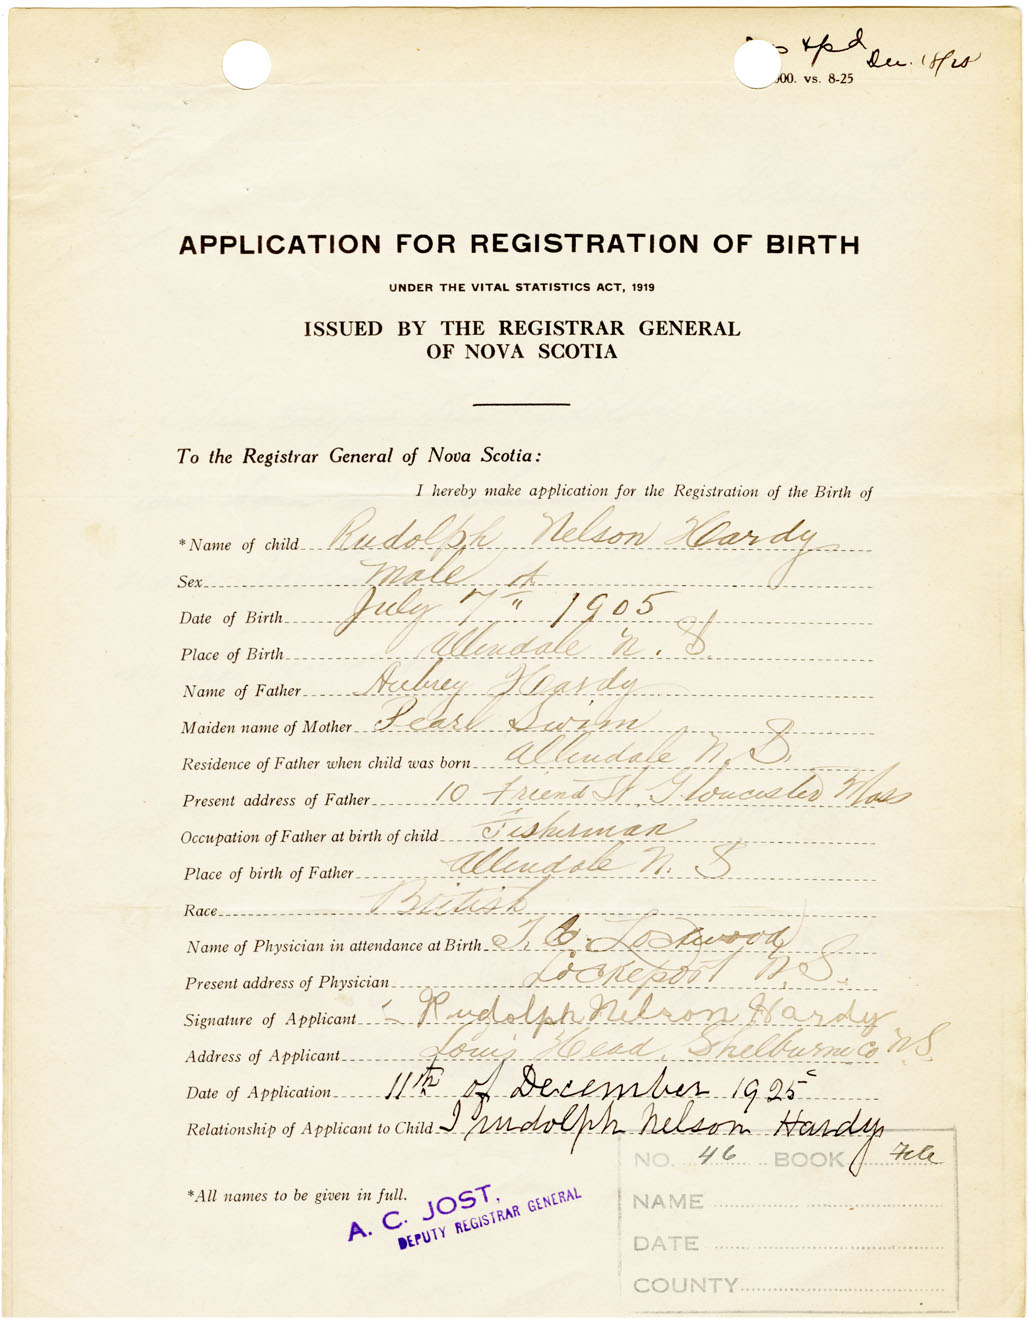 & pd Dec. 18/25
000. vs. 8-25
APPLICATION FOR REGISTRATION OF BIRTH
UNDER THE VITAL STATISTICS ACT, 1919
ISSUED BY THE REGISTRAR GENERAL
OF NOVA SCOTIA
To the Registrar General of Nova Scotia:
I hereby make application for the Registration of the Birth of
*Name of child Rudolph Nelson Hardy
Sex Male
Date of Birth July 7th 1905
Place of Birth Allendale N. S.
Name of Father Aubrey Hardy
Maiden name of Mother Pearl Swim
Residence of Father when child was born Allendale N. S.
Present address of Father 10 Friend St Gloucester Mass
Occupation of Father at birth of child Fisherman
Place of birth of Father Allendale N. S
Race British
Name of Physician in attendance at Birth T. C. Lockwood
Present address of Physician Lockeport N. S.
Signature of Applicant Rudolph Nelson Hardy
Address of Applicant Louis Head, Shelburne Co N S.
Date of Application 11th of December 1925
Relationship of Applicant to Child I rudolph Nelson Hardy
NO. 46 BOOK File
*All names to be given in full.
NAME
A. C. JOST,
DEPUTY REGISTRAR GENERAL
DATE
COUNTY